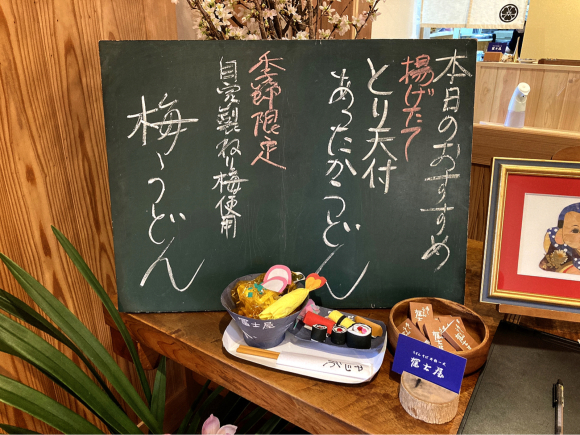 本日のおすすめ
揚げたて
とり天付
あったかうどん
季節限定
自家製ねり梅使用
梅うどん
冨士屋
冨士屋